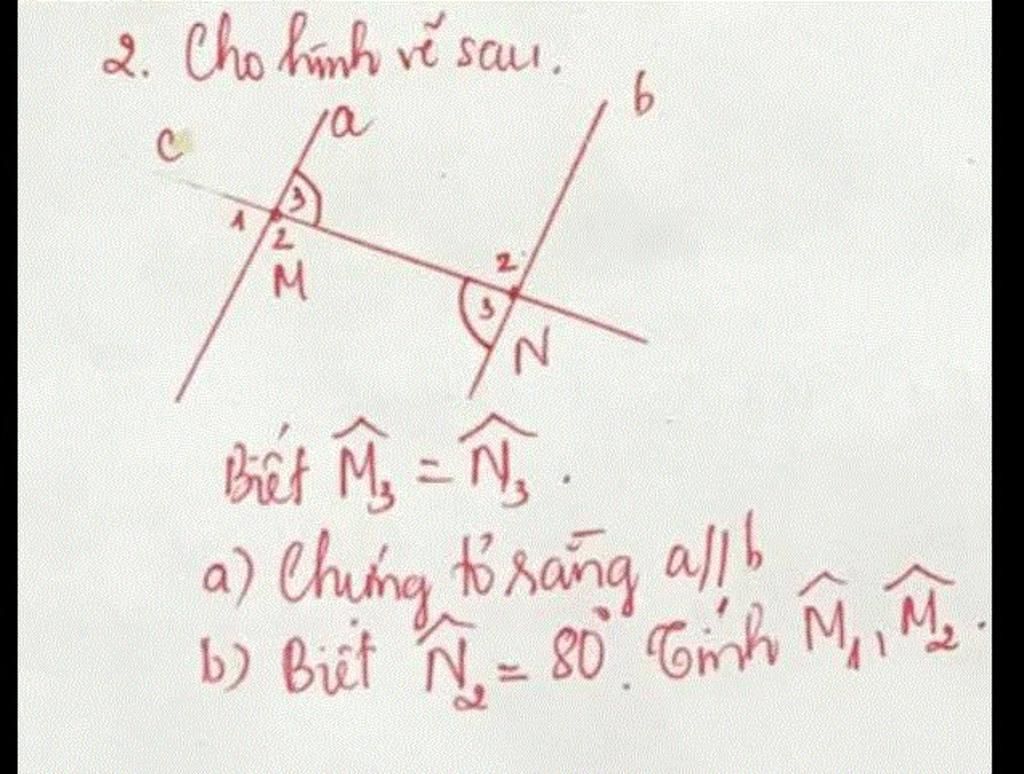 2. Cho hình vẽ sau.
c a b
1 3 2 M
2 3 N
Biết M̂₃ = N̂₃.
a) Chứng tỏ rằng a//b
b) Biết N̂₂ = 80°. Tính M̂₁, M̂₂.